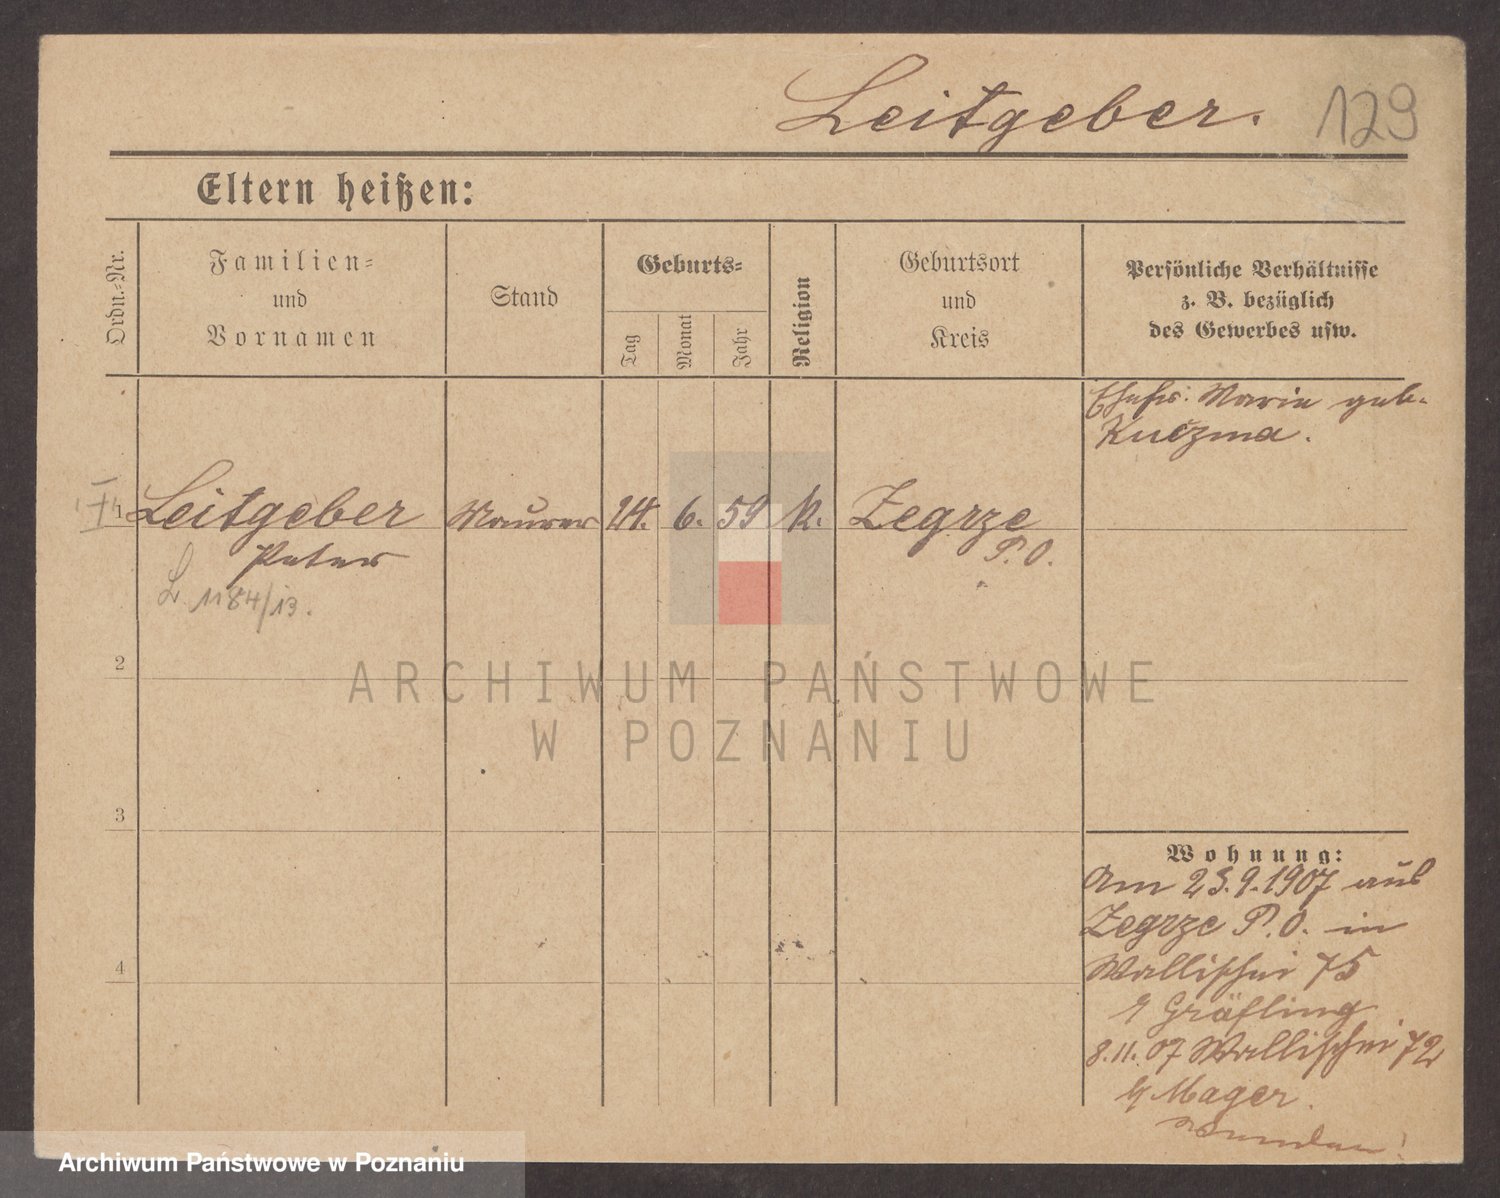 Leitgeber. 129
Eltern heißen:
Ordn.-Nr.
Familien-
und
Vornamen
Stand
Geburts-
Tag
Monat
Jahr
Religion
Geburtsort
und
Kreis
Persönliche Verhältnisse
z. B. bezüglich
des Gewerbes usw.
Ehefr. Marie geb.
Kuczma.
1 Leitgeber Maurer 24. 6. 59 k. Zegrze
Peter P. O.
L. 1184/13.
2
3
4
Wohnung:
Am 23.9.1907 aus
Zegrze P.O. in
Wallischei 75
Gräfling
8.11.07 Wallischei 72
Mager.
ARCHIWUM PAŃSTWOWE
W POZNANIU
Archiwum Państwowe w Poznaniu